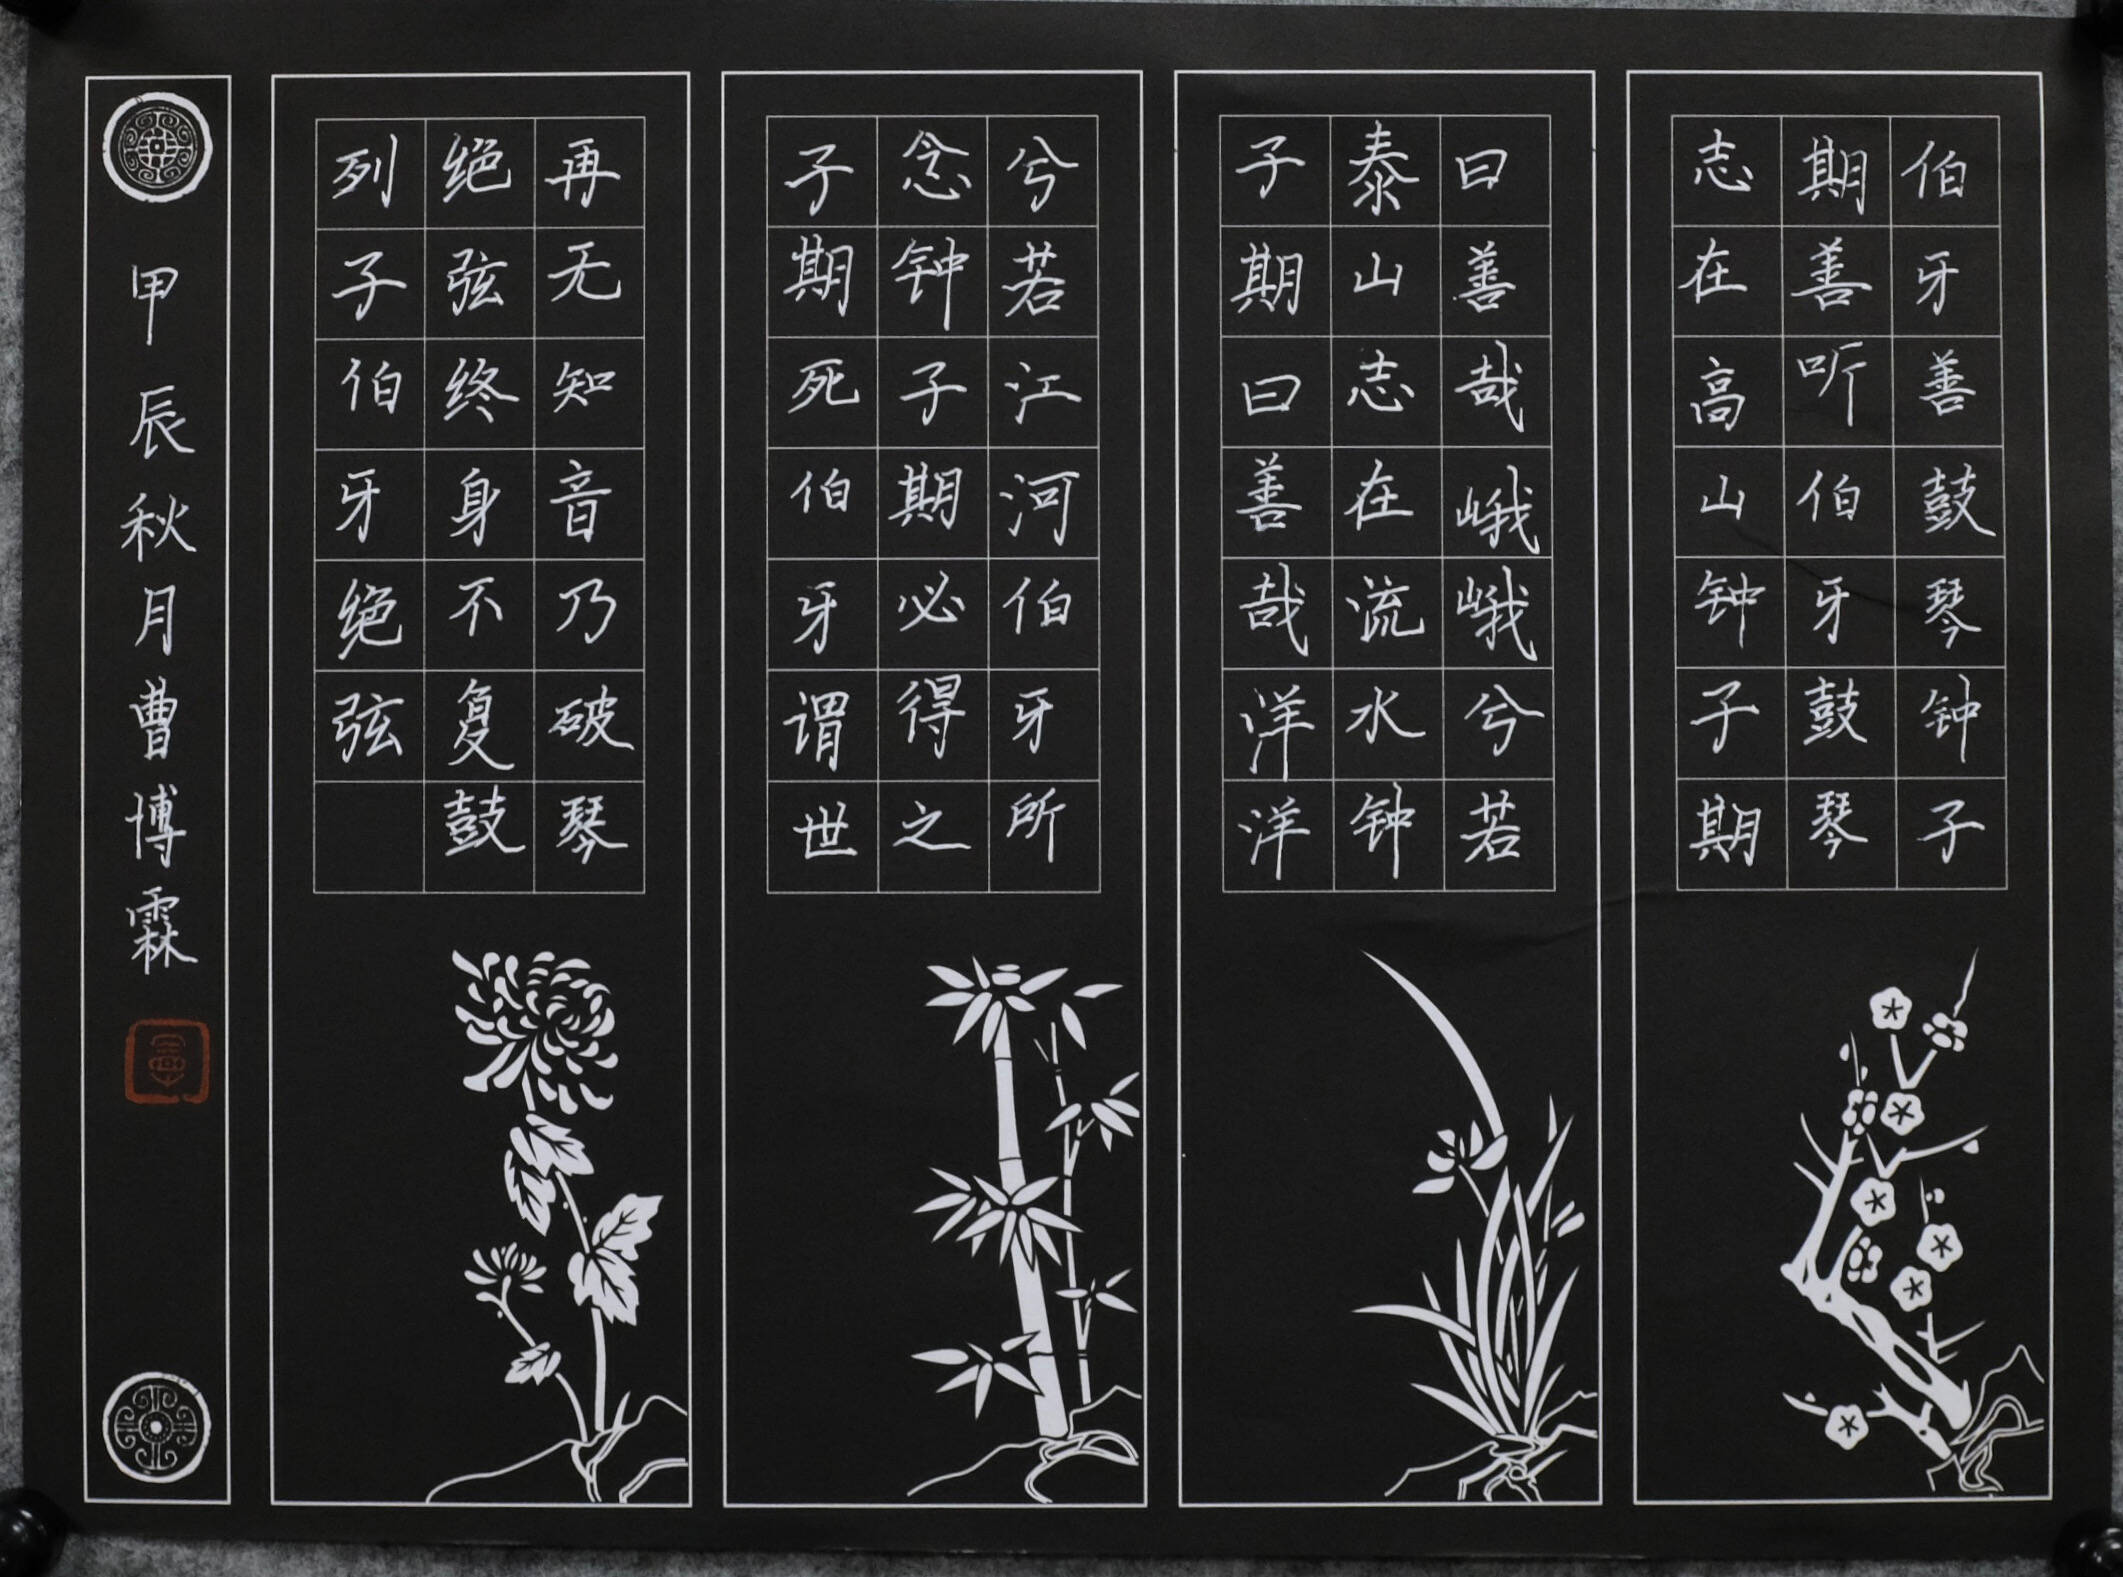 伯牙善鼓琴钟子
期善听伯牙鼓琴
志在高山钟子期
曰善哉峨峨兮若
泰山志在流水钟
子期曰善哉洋洋
兮若江河伯牙所
念钟子期必得之
子期死伯牙谓世
再无知音乃破琴
绝弦终身不复鼓
列子伯牙绝弦
甲辰秋月曹博霖